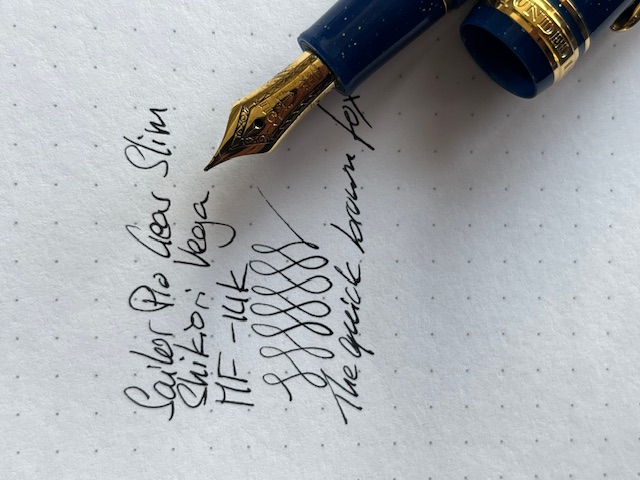 Sailor Pro Gear Slim
Shikiori Vega
MF - 14K
The quick brown fox
OUNDED